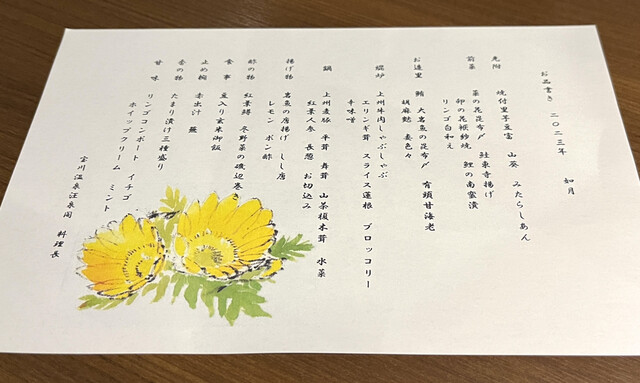 お品書き 二〇二三年 如月
先附 焼付里芋豆富 山葵 みたらしあん
前菜 菜の花昆布〆 鮭東寺揚げ
卯の花袱紗焼 鯉の南蛮漬
リンゴ白和え
お造里 鮪 大岩魚の昆布〆 有頭甘海老
胡麻麩 妻色々
焜炉 上州牛肉しゃぶしゃぶ
エリンギ茸 スライス蓮根 ブロッコリー
辛味噌
鍋 上州麦豚 平茸 舞茸 山茶榎木茸 水菜
紅葉人参 長葱 お切込み
揚げ物 岩魚の唐揚げ しし唐
レモン ポン酢
酢の物 紅葉鱒 冬野菜の砧巻き
食事 豆入り玄米御飯
止め椀 赤出汁
香の物 たまり漬け三種盛り
甘味 リンゴコンポート イチゴ
ホイップクリーム ミント
宝川温泉汪泉閣 料理長